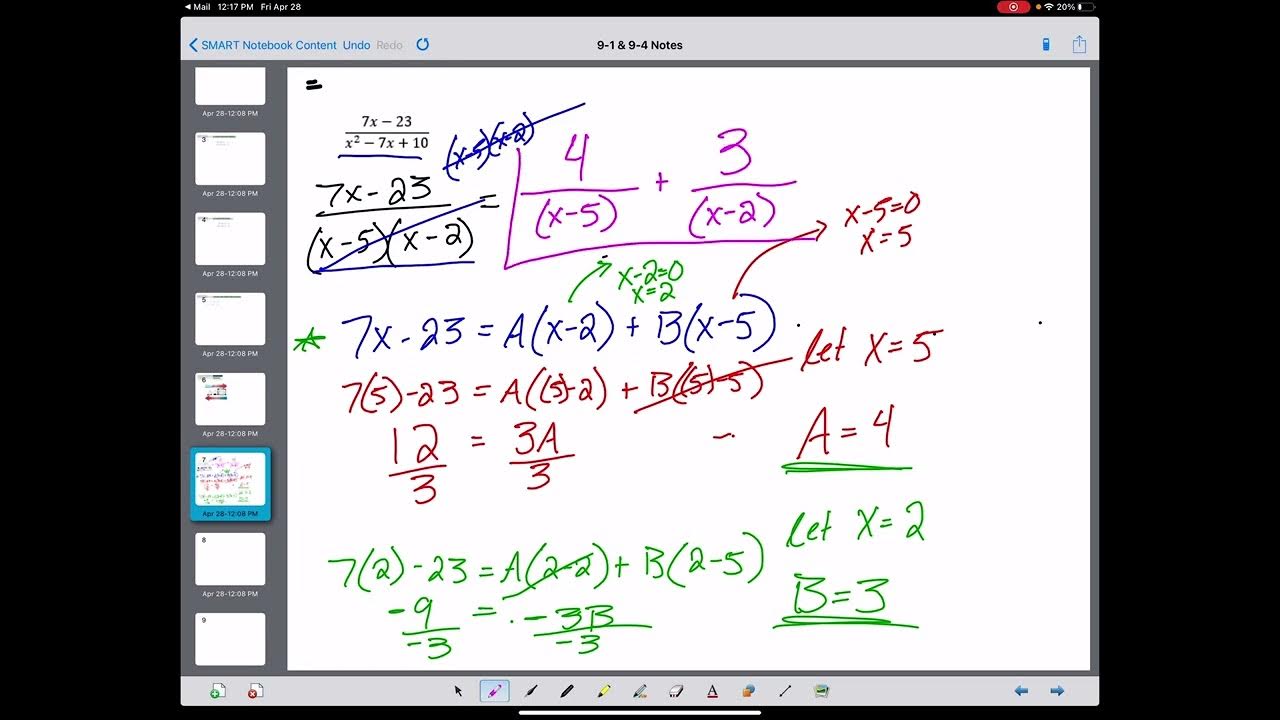 Mail 12:17 PM Fri Apr 28 20%
SMART Notebook Content Undo Redo 9-1 & 9-4 Notes
Apr 28-12:08 PM
3
Apr 28-12:08 PM
4
Apr 28-12:08 PM
5
Apr 28-12:08 PM
6
Apr 28-12:08 PM
7
Apr 28-12:08 PM
8
Apr 28-12:08 PM
9
=
7x − 23
x² − 7x + 10
(x-5)(x-2)
7x-23 = 4 + 3
(x-5)(x-2) (x-5) (x-2)
x-5=0
x=5
x-2=0
x=2
7x-23 = A(x-2) + B(x-5)
let x=5
7(5)-23 = A((5)-2) + B((5)-5)
12 = 3A
3 3
A=4
let x=2
7(2)-23 = A(2-2) + B(2-5)
-9 = -3B
-3 -3
B=3
A